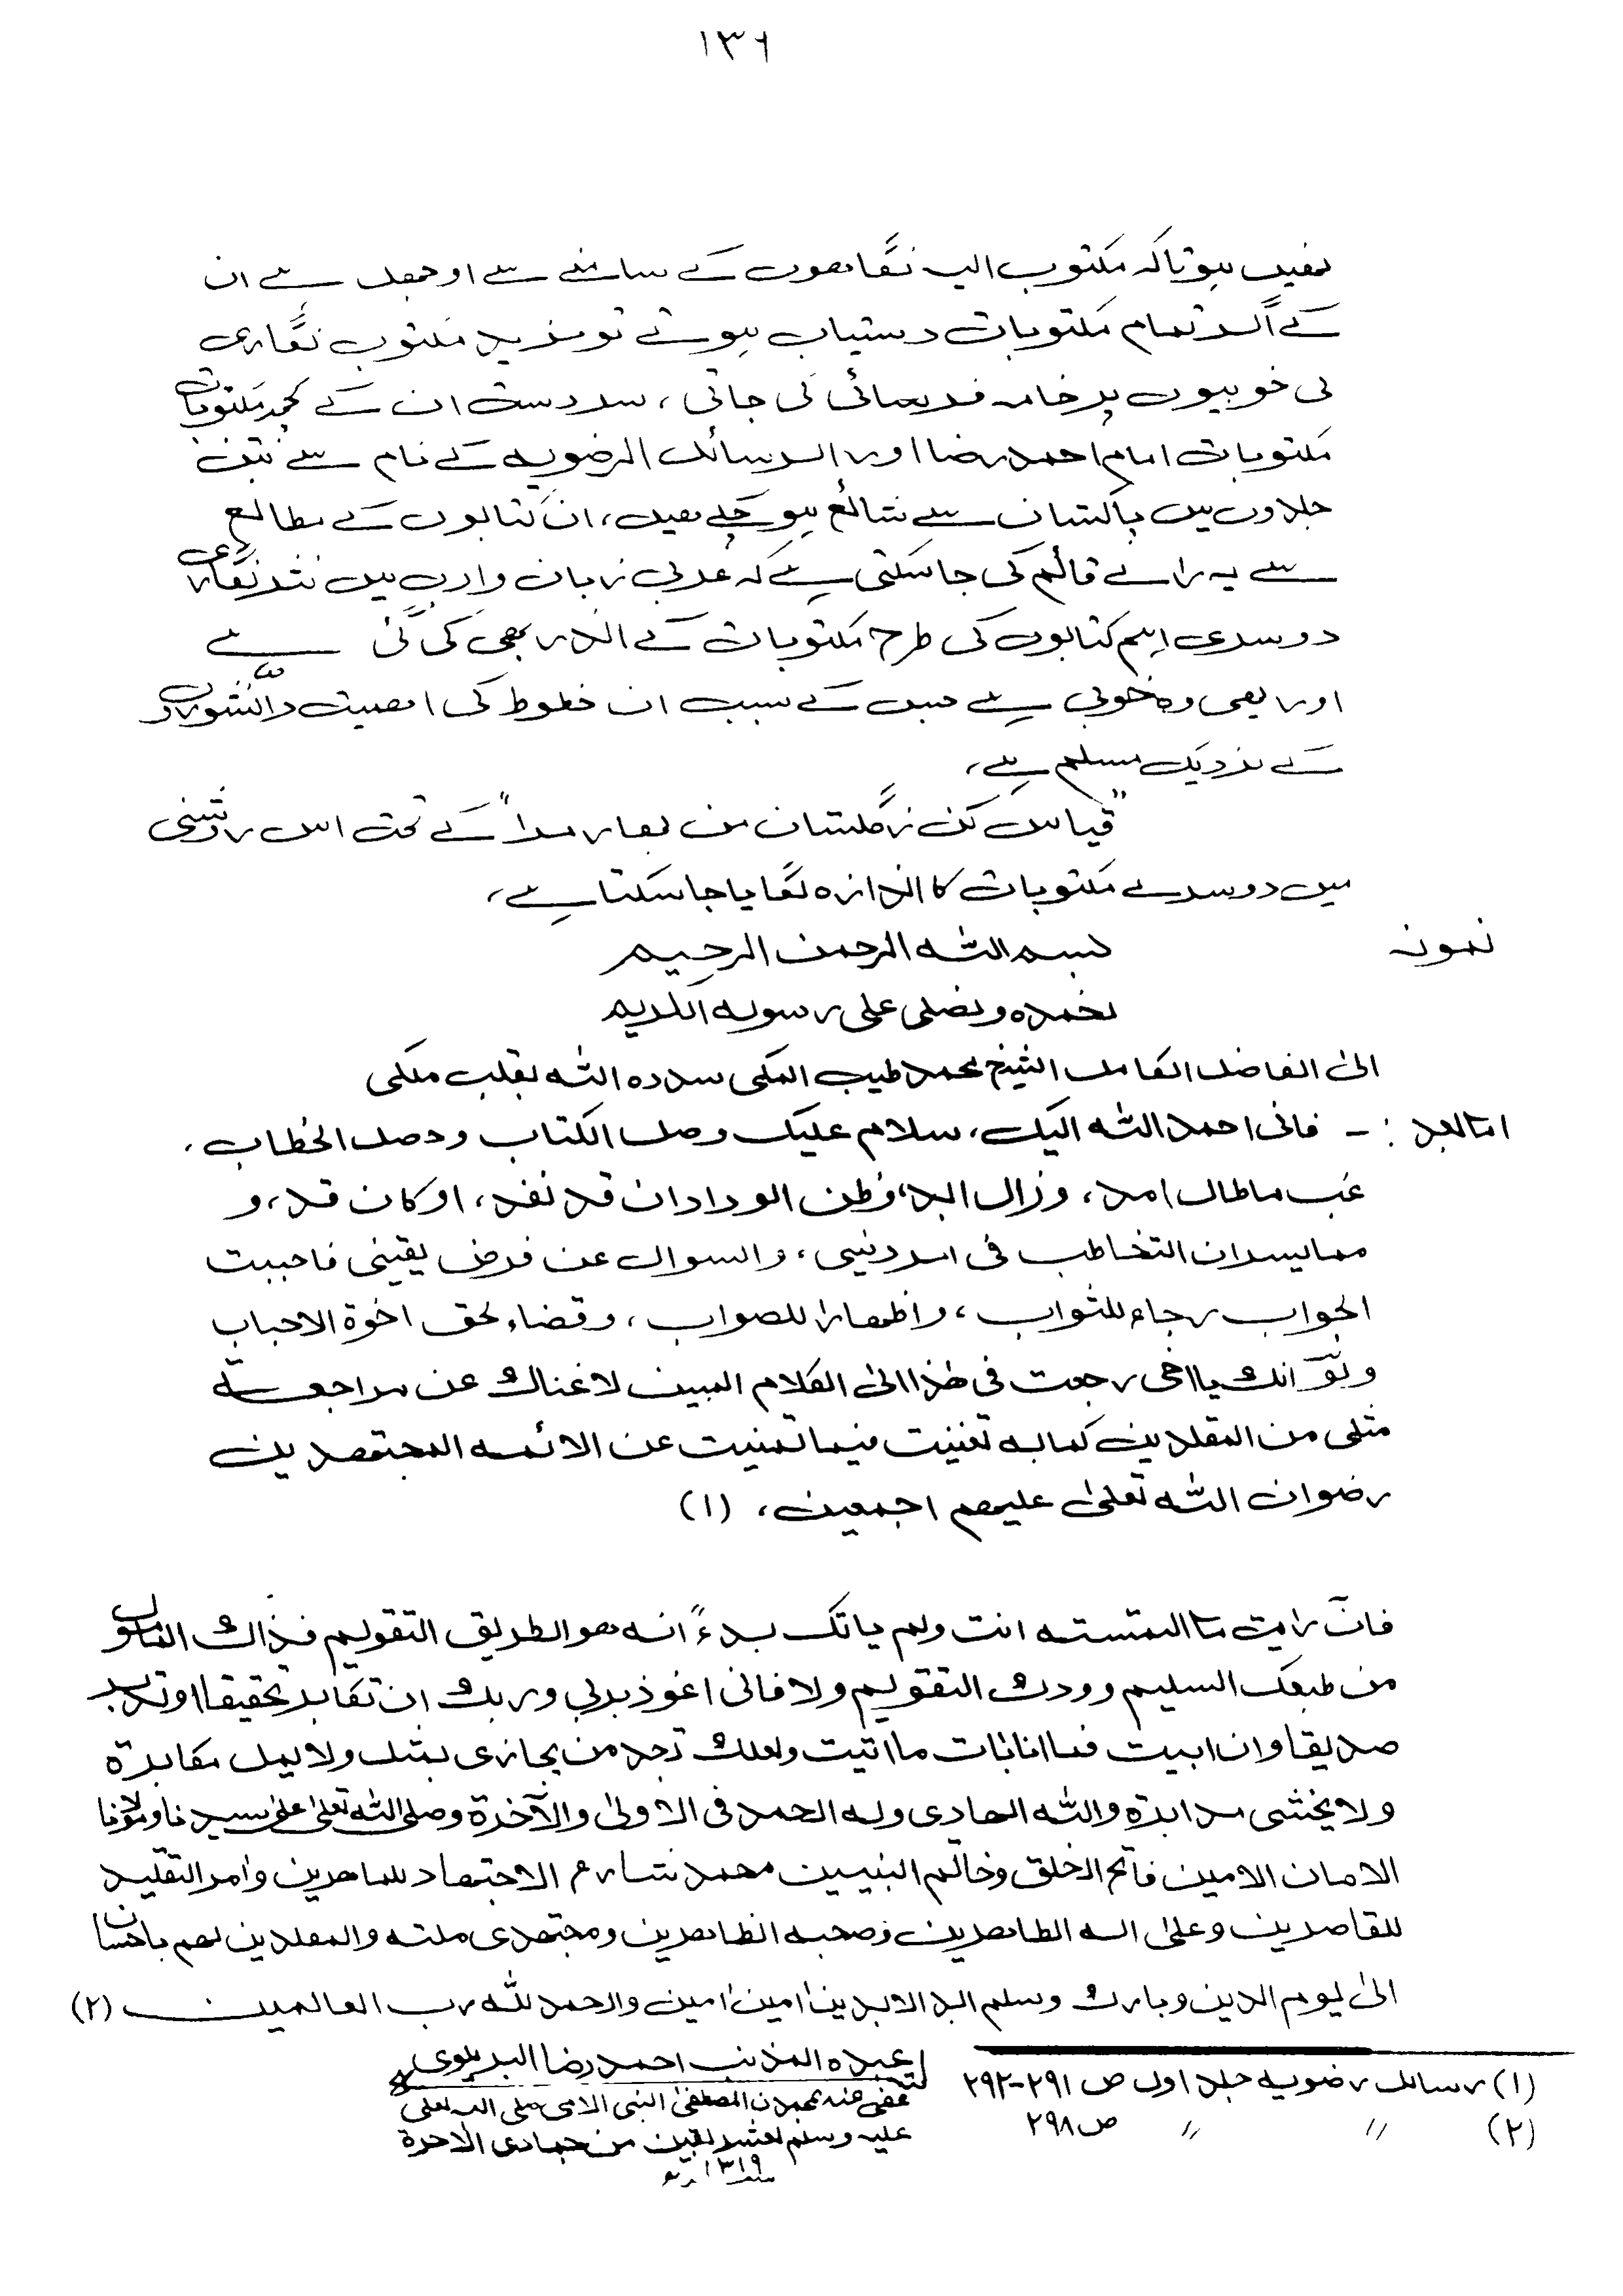 ۱۳۶
نہیں ہوتا کہ مکتوب الیہ نگاہوں کے سامنے سے اوجھل ہے ان
کے اگر تمام مکتوبات دستیاب ہوتے تو مزید مکتوب نگاری
کی خوبیوں پر خامہ فرسائی کی جاتی، سردست ان کے کچھ مکتوبات
مکتوبات امام احمد رضا اور الرسائل الرضویہ کے نام سے
جلدوں میں پاکستان سے شائع ہو چکے ہیں، ان کتابوں کے مطالعہ
سے یہ رائے قائم کی جا سکتی ہے کہ عربی زبان و ادب میں نثر نگاری
دوسری اہم کتابوں کی طرح مکتوبات کے اندر بھی کی گئی ہے
اور یہی وہ خوبی ہے جس کے سبب ان خطوط کی اہمیت دانشوروں
کے نزدیک مسلم ہے،
"قیاس کن زگلستان من بہار مرا" کے تحت اس روشنی
میں دوسرے مکتوبات کا اندازہ لگایا جا سکتا ہے،
نمونہ
بسم اللہ الرحمن الرحیم
نحمدہ و نصلی علی رسولہ الکریم
الیٰ الفاضل الکامل الشیخ محمد طیب المکی سددہ اللہ بقلب ملکی
اما بعد :ــ فانی احمد اللہ الیک، سلام علیک وصل الکتاب وحصل الخطاب،
غب ما طال امد، وزال البد، وظن الودادان قد نفد، اوکان قد، و
مما یسران التخاطب فی امر دینی، والسوال عن فرض یقینی فاحببت
الجواب رجاء للثواب، واظهارا للصواب، وقضاء لحق اخوۃ الاحباب
ولو انک یا اخی رجعت فی هٰذا الیٰ الکلام المبین لاغناك عن مراجعۃ
مثلی من المقلدین کما بہ تغنیت فیما تمنیت عن الائمہ المجتهدین
رضوان اللہ تعلیٰ علیهم اجمعین، (۱)
فان رایت ما التمستہ انت ولم یاتک بدءً انہ هو الطریق القویم فذاك المامول
من طبعک السلیم وودك القویم ولا فانی اعوذ بربی وربك ان تکابر تحقیقا او تکذب
صدیقا وان ابیت فما انا بات ما اتیت ولعلك تجد من یجازی بمثل ولا یمل مکابرۃ
ولا یخشی مدابرۃ واللہ الهادی ولہ الحمد فی الاولیٰ والآخرۃ وصلی اللہ تعلیٰ علیٰ سیدنا ومولانا
الامان الامین فاتح الخلق وخاتم النبیین محمد شارع الاجتهاد للماهرین وامر التقلید
للقاصرین وعلیٰ الہ الطاهرین وصحبہ الظاهرین ومجتهدی ملتہ والمقلدین لهم باحسان
الیٰ لیوم الدین وبارك وسلم ابد الابدین امین امین والحمد للہ رب العالمین (۲)
عبدہ المذنب احمد رضا البریلوی
عفی عنہ بمحمدن المصطفیٰ النبی الامی صلی اللہ تعلی
علیہ وسلم لعشر بقین من جمادی الاخرۃ
سنہ ۱۳۱۹ھ
(۱) رسائل رضویہ جلد اول ص ۲۹۱-۲۹۲
(۲) // // ص ۲۹۸